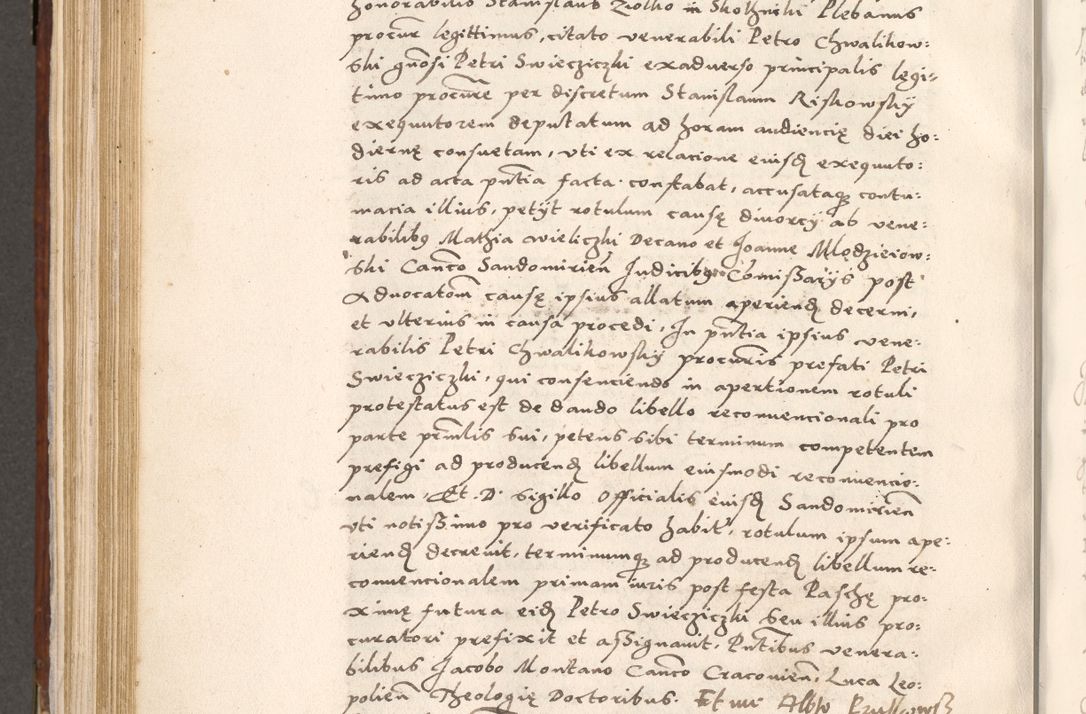 honorabilis Stanislaus Ziolko in Skolznihi Plebanus
procur legittimus, citato venerabili Petro Chwalikow:
ski gnosi Petri Swiecziczki exaduerso principalis legi:
timo procure per discretum Stanislaum Riskowsky
exequutorem deputatum ad horam audiencię diei ho:
diernę consuetam, vti ex relacione eiusd exequuto:
ris ad acta pntia facta constabat, accusataq contu:
macia illius, petijt rotulum causę diuorcij ab vene:
rabilibq Mathia wieliczki Decano et Joanne Mlodzieiow:
ski Canco Sandomirien Judicibq Comissarijs post
Aduocatom causę ipsius allatum aperiend decerni,
et vlterius in causa procedi, In pntia ipsius vene:
rabilis Petri Chwalikowsky procuris prefati Petri
Swiecziczki, qui consenciendo in apertionem rotuli
protestatus est de dando libello reconuencionali pro
parte prinlis sui, petens sibi terminum competentem
prefigi ad producend libellum eiusmodi reconuencio:
nalem, Et D. sigillo Officialis eiusd Sandomirien
vti notissimo pro verificato habit, rotulum ipsum ape:
riend decreuit, terminumq ad producend libellum re:
conuencionalem primam iuris post festa Paschę pro:
ximę futura eid Petro Swiecziczki seu illius pro:
curatori prefixit et assignauit, Pntibus venera:
bilibus Jacobo Montano Canco Cracouien, Luca Leo:
polien Theologię Doctoribus. Et me Albto